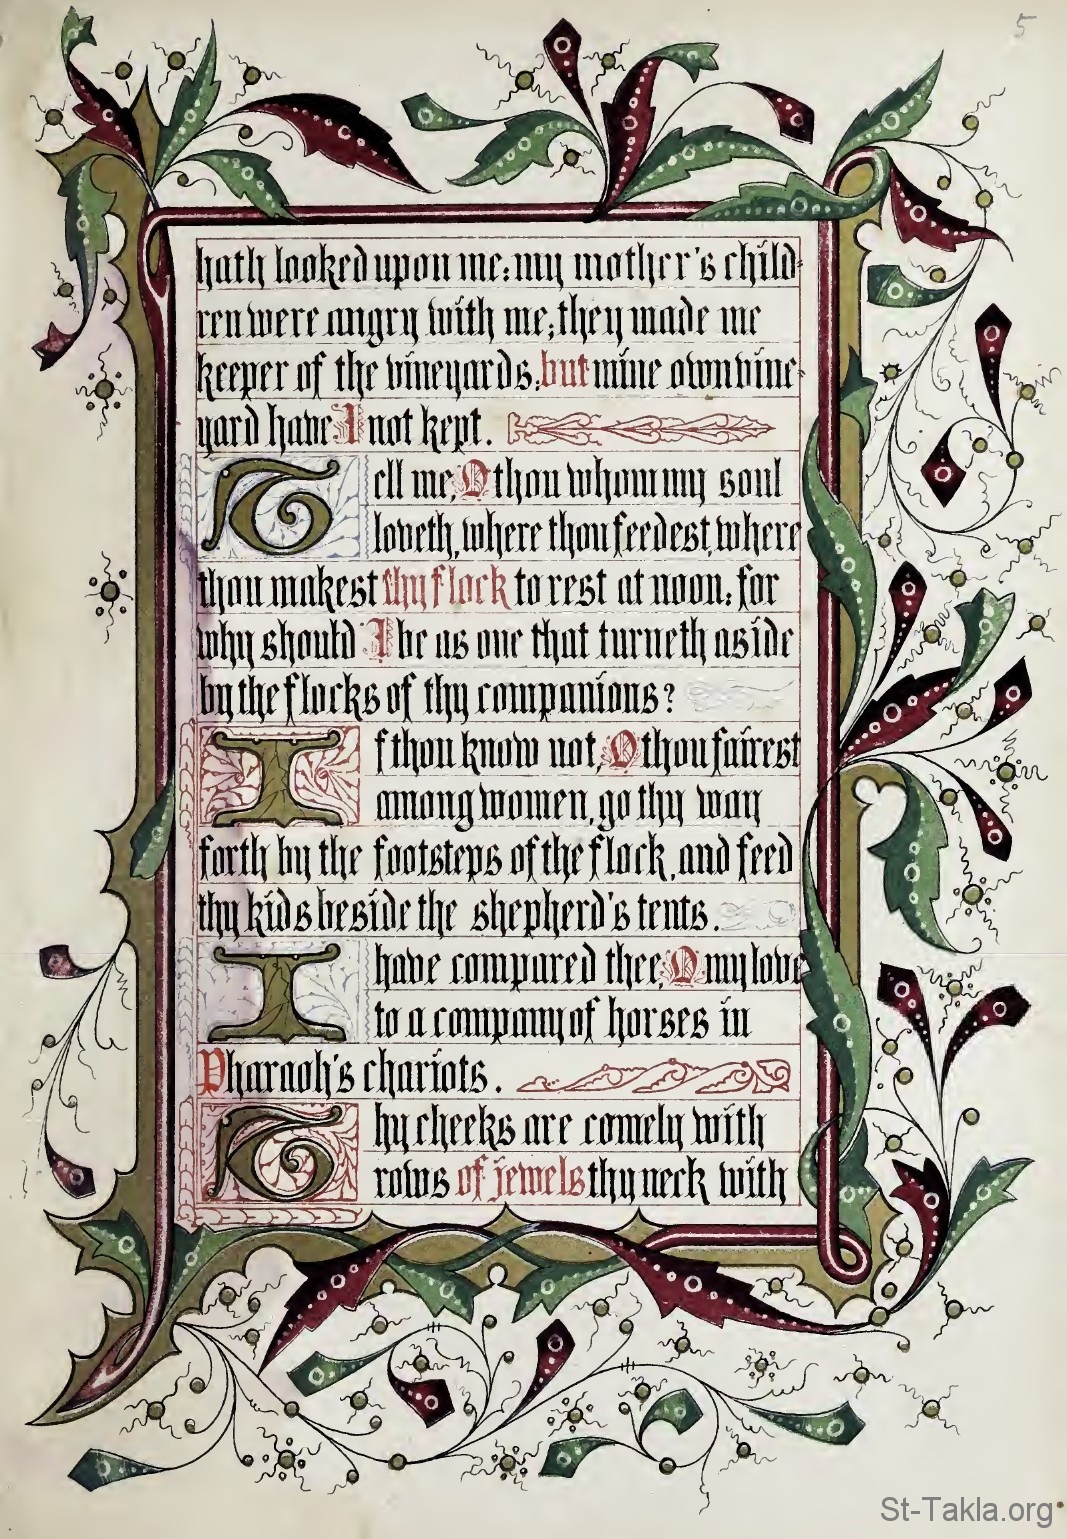 5
hath looked upon me: my mother's child-
ren were angry with me; they made me
keeper of the vineyards: but mine own vine-
yard have I not kept.
Tell me, O thou whom my soul
loveth, where thou feedest, where
thou makest thy flock to rest at noon: for
why should I be as one that turneth aside
by the flocks of thy companions?
If thou know not, O thou fairest
among women, go thy way
forth by the footsteps of the flock, and feed
thy kids beside the shepherd's tents.
I have compared thee, O my love
to a company of horses in
Pharaoh's chariots.
Thy cheeks are comely with
rows of jewels thy neck with
St-Takla.org